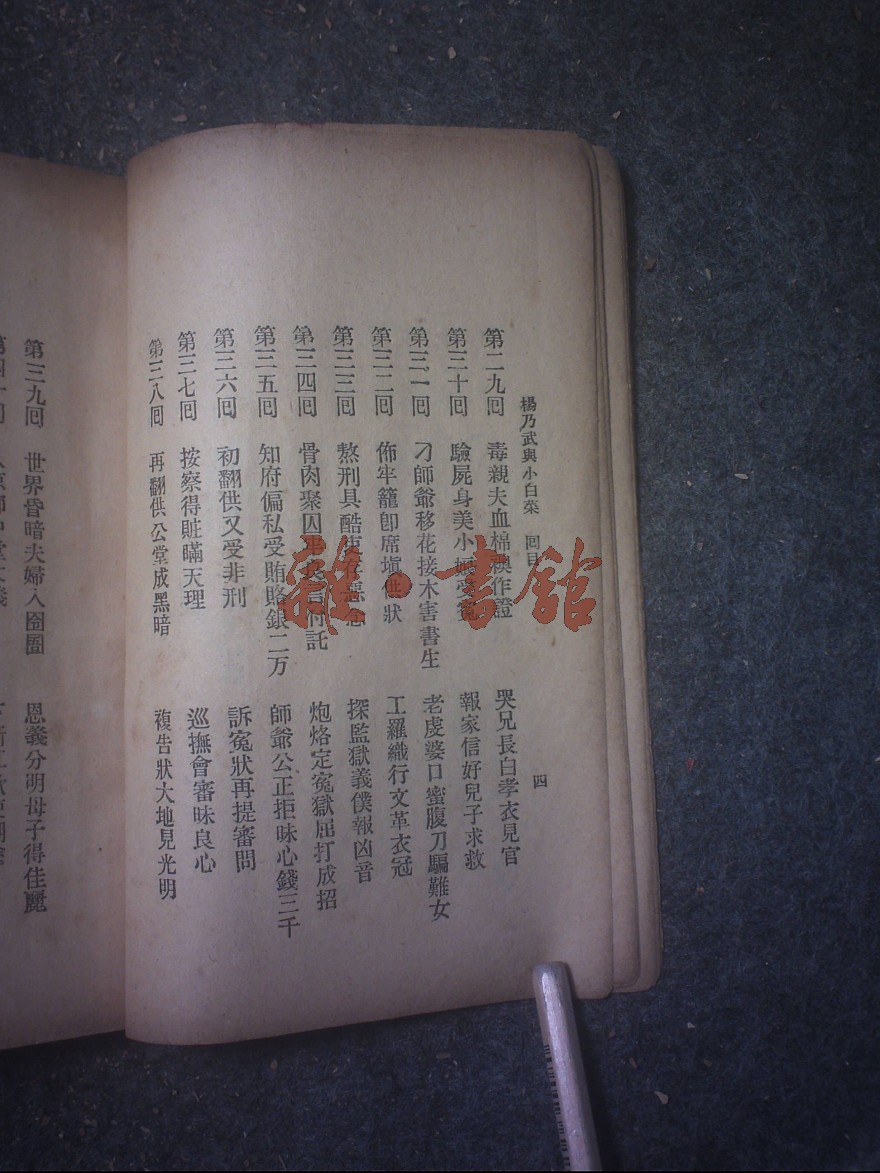 楊乃武與小白菜 回目 四
第二九回 毒親夫血棉 作證 哭兄長白孝衣見官
第三十回 驗屍身美小 報家信好兒子求救
第三一回 刁師爺移花接木害書生 老虔婆口蜜腹刀騙難女
第三二回 佈牢籠卽席塡供狀 工羅織行文革衣冠
第三三回 熬刑具酷吏 探監獄義僕報凶音
第三四回 骨肉聚囚 託 炮烙定冤獄屈打成招
第三五回 知府偏私受賄賂銀二万 師爺公正拒昧心錢三千
第三六回 初翻供又受非刑 訴冤狀再提審問
第三七回 按察得賍瞞天理 巡撫會審昧良心
第三八回 再翻供公堂成黑暗 複告狀大地見光明
第三九回 世界昏暗夫婦入囹圄 恩義分明母子得佳麗
雜·書館